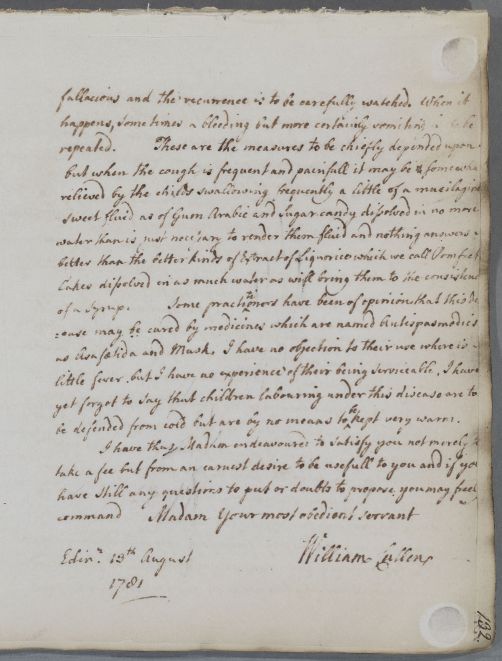 fallacious and the recurrence is to be carefully watched. When it
happens, sometimes a bleeding but more certainly vomiting is to be
repeated. These are the measures to be chiefly depended upon
but when the cough is frequent and painfull it may be somewha
relieved by the childs swallowing frequently a little of a musilagin
sweet fluid as of Gum Arabic and Sugar candy disolved in no more
water than is just necisary to render them fluid and nothing answers
better than the better kinds of Extract of Liquorice which we call Pomfret
Cakes disolved in as much water as will bring them to the consisten
of a Syrup. Some practitioners have been of opinion that this Di
=sease may be cured by medicines which are named Antispasmodics
as Asafætida and Musk. I have no objection to their use where is
little fever. but I have no experience of their being serviceable. I have
yet forgot to say that children labouring under this disease are to
be defended from cold but are by no means to be kept very warm.
I have thus Madam endeavoured to satisfy you not merely to
take a fee but from an earnest desire to be usefull to you and if you
have still any questions to put or doubts to propose you may freely
command Madam Your most obedient servant
Edinr. 13th August William Cullen
1781
132